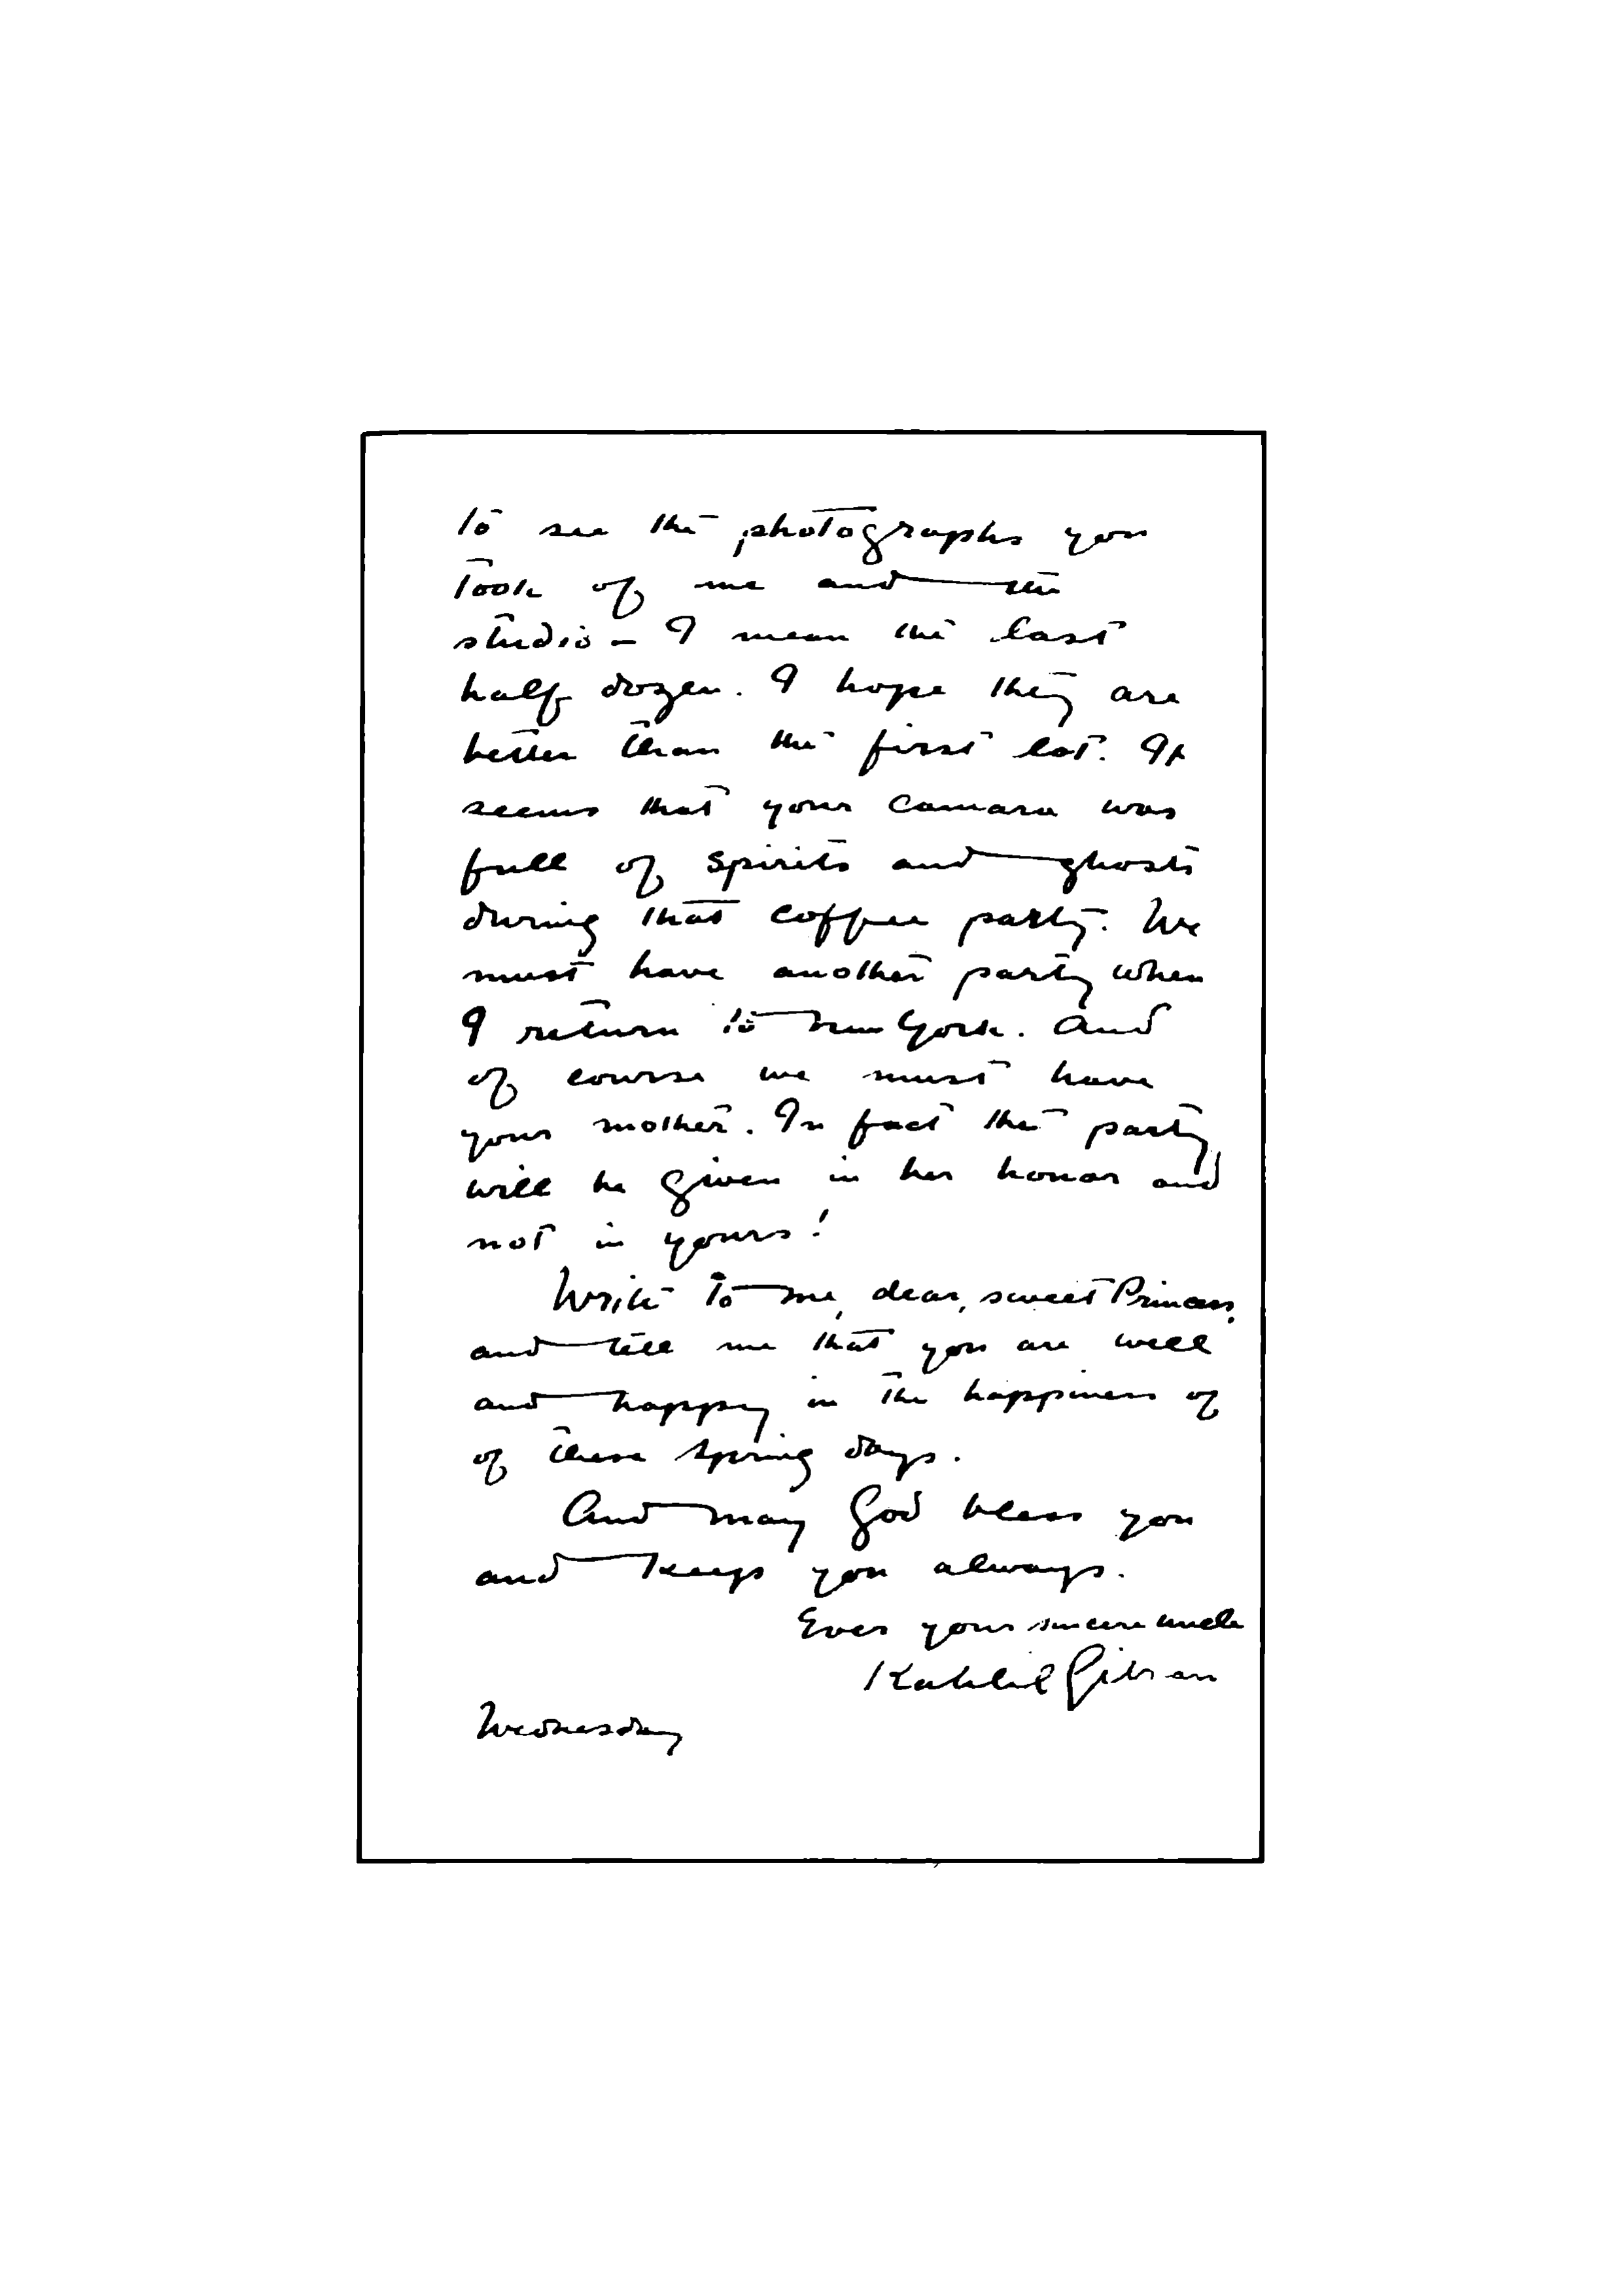 to see the photographs you
took of me and the
studio – I mean the last
half dozen. I hope they are
better than the first lot. It
seems that your camara was
full of spirits and ghosts
during that coffee party. We
must have another party when
I return to New York. And
of course we must have
your mother. In fact the party
will be given in her honor and
not in yours!
Write to me, dear, sweet Princess,
and tell me that you are well
and happy in the happiness of
of these spring days.
And may God bless you
and keep you always.
Ever your sincere uncle
Kahlil Gibran
Wednesday